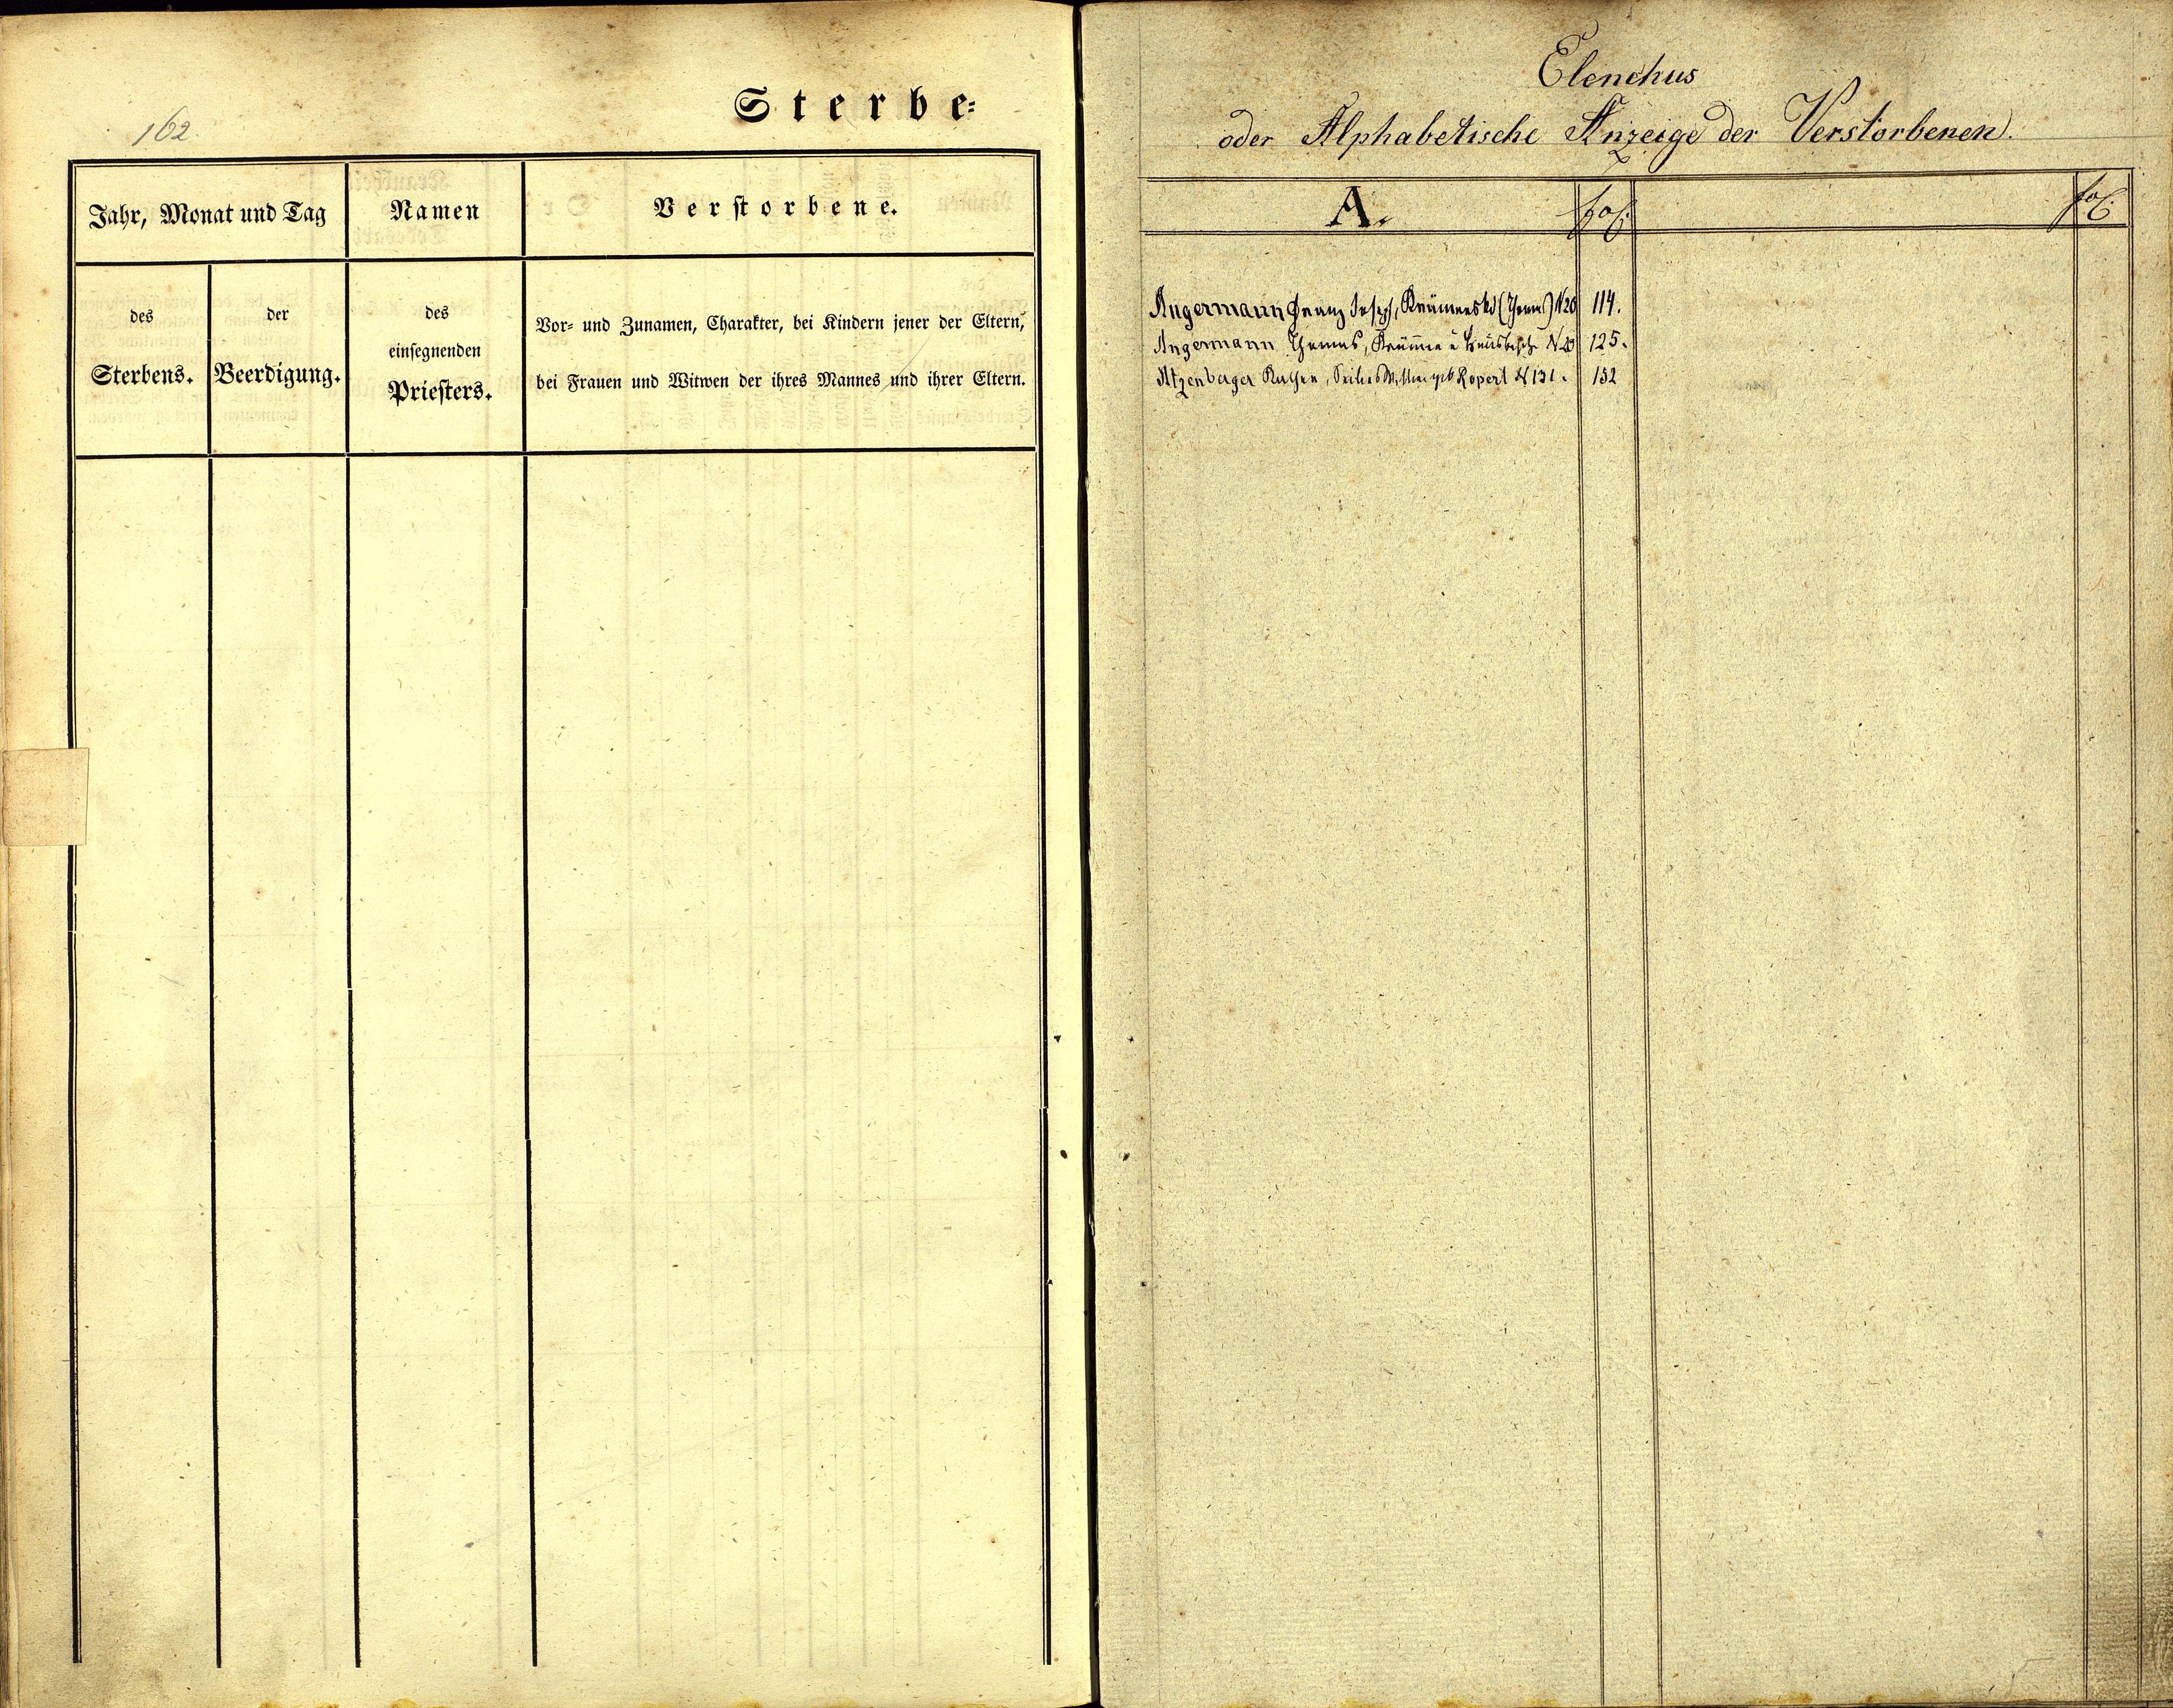 162.
Sterbe=
Jahr, Monat und Tag
Namen
Verstorbene.
des
Sterbens.
der
Beerdigung.
des
einsegnenden
Priesters.
Vor- und Zunamen, Charakter, bei Kindern jener der Eltern,
bei Frauen und Witwen der ihres Mannes und ihrer Eltern.
Elenchus
oder Alphabetische Anzeige der Verstorbenen.
A. fol. fol.
Angermann Franz Joseph, (Thomas) N 20 114.
Angermann Thomas, N 20 125.
Atzenberger Rupert N 131. 152